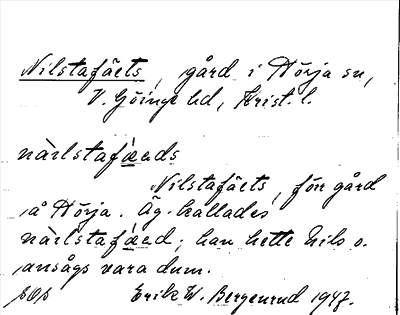 Nilstafäets, gård i Hörja sn,
V. Göinge hd, Krist. l.
nàrlstafǽeds
Nilstafäets, förr gård
å Hörja. Äg. kallades
nàrlstafǽed; han hette Nils o.
ansågs vara dum.
Erik W. Bergenrud 1947.